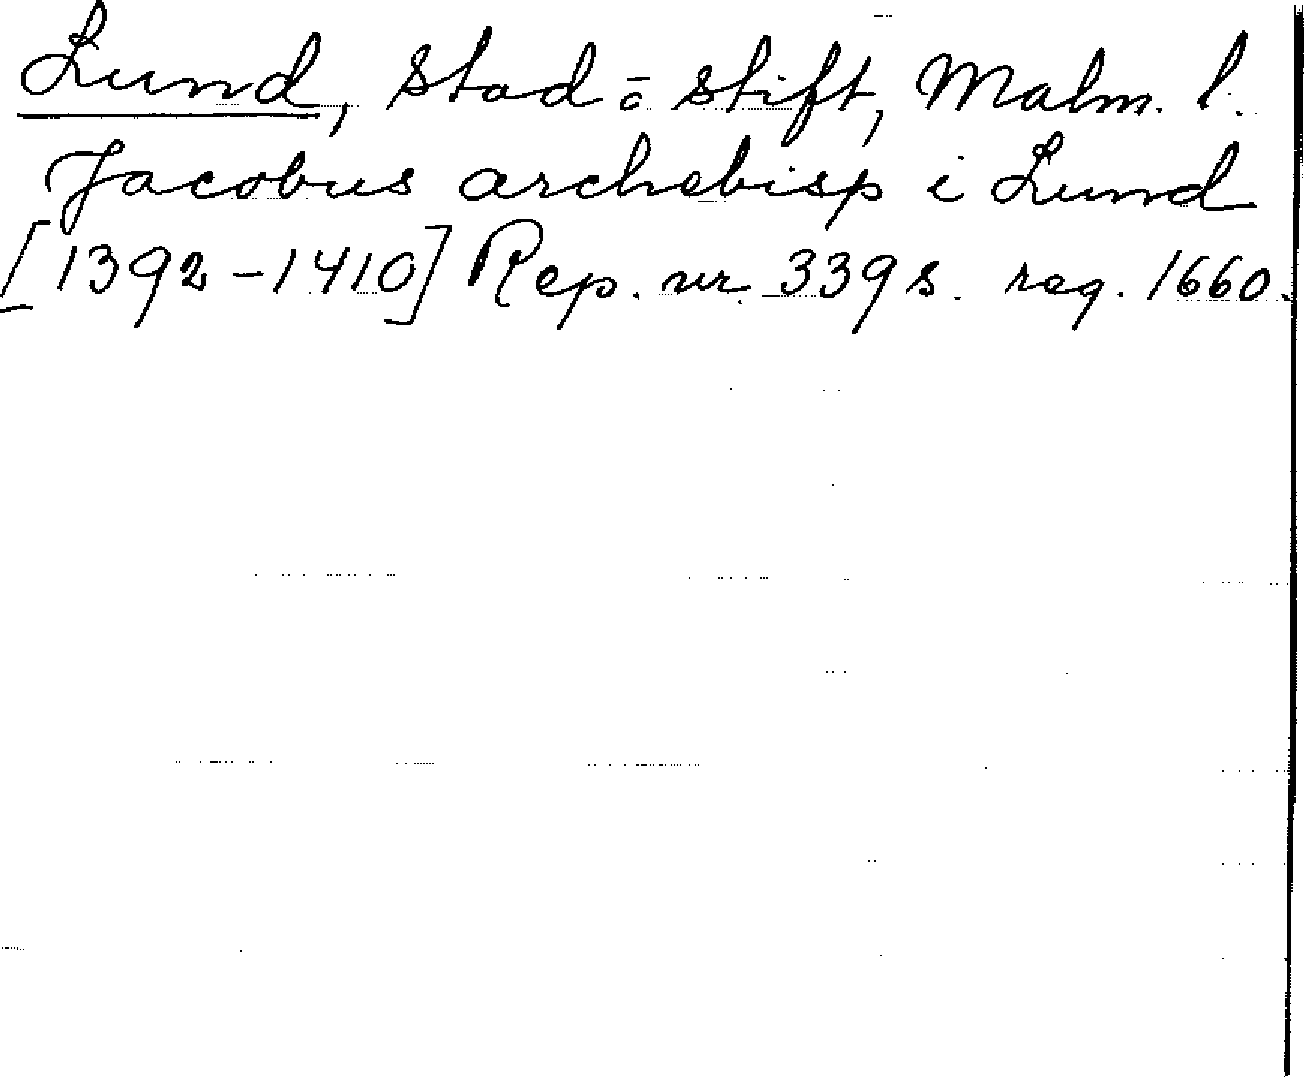 Lund, stad o stift, Malm. l.
Jacobus archebisp i Lund
[1392-1410] Rep. nr 339 s. reg. 1660.